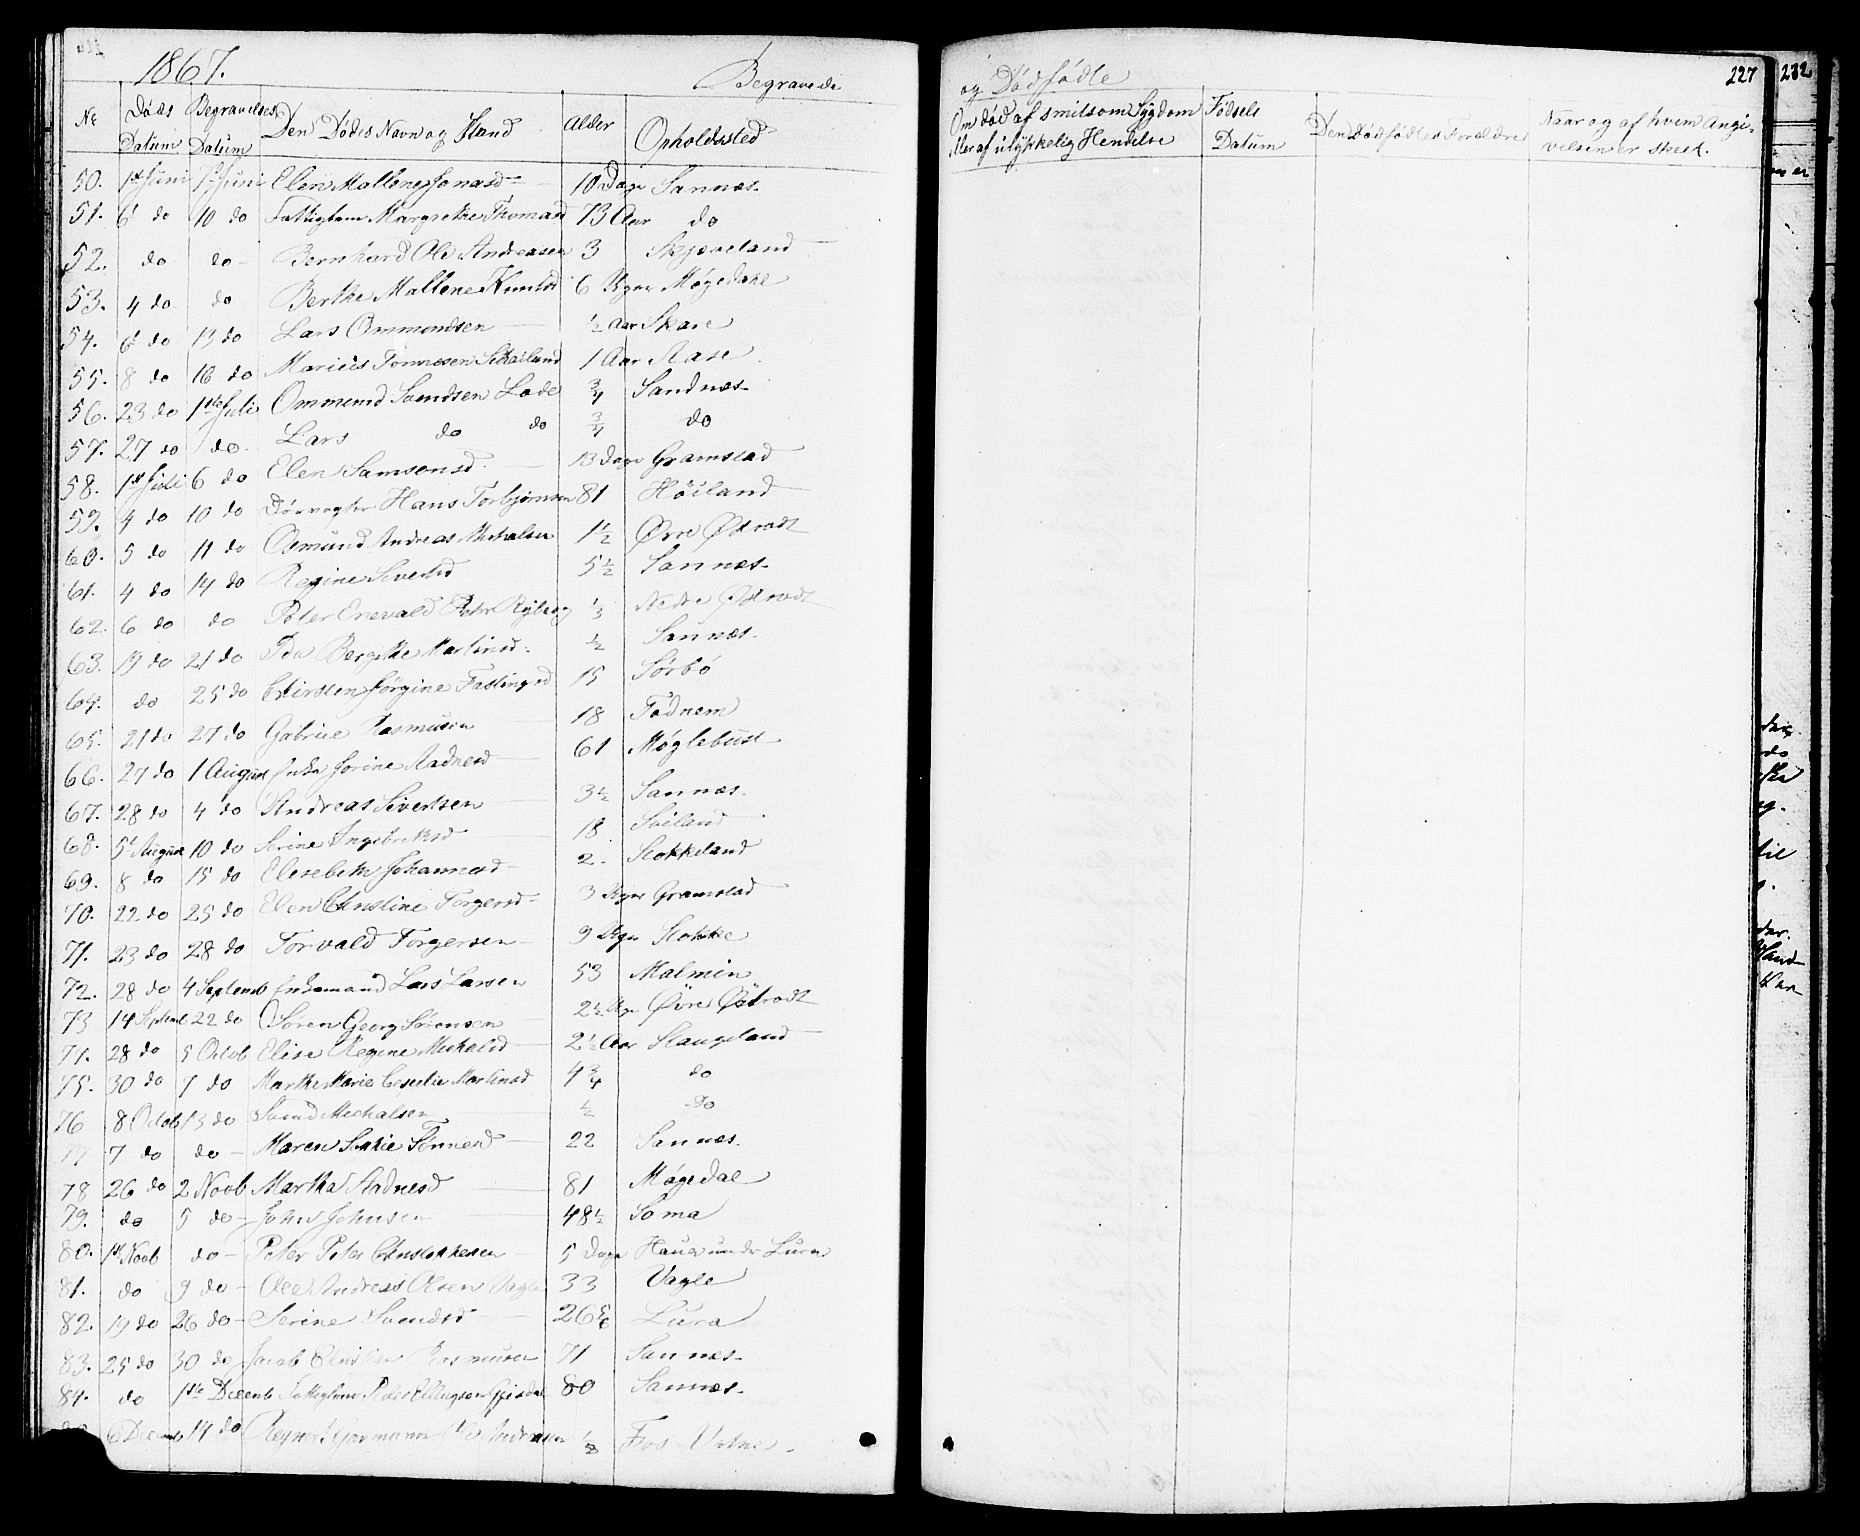 1867.
Begravede
No Døds Datum Begravelses Datum Den Dødes Navn og Stand Alder Opholdssted
50. 1st Juni 1st Juni Elen Mallene Jonasd 10 Dage Sannæs
51. 6 do 10 do Fattiglem Margrethe Thomasd 73 Aar do
52. do do Bernhard Ole Andreasen 3 Skjæveland
53. 4 do do Berthe Mallene Knudsd 6 Uger Møgedahl
54. 6 do 13 do Lars Ommundsen ½ Aar Skare
55. 8 do 16 do Marius Tønnesen 1 Aar Aase
56. 23 do 1ste Juli Ommund Svendsen Lode ¾ Sandnæs
57. 27 do do Lars do do ¾ do
58. 1st Juli 6 do Elen Samsonsd 13 Dage Gramstad
59. 4 do 10 do Hans Torbjørnsen 81 Høiland
60. 5 do 11 do Osmund Andreas Michalsen 1½ Øvre Østradt
61. 4 do 14 do Regine Sivertsd 5½ Sannæs
62. 6 do do Peter Enevald Peter ⅓ Nedre Østradt
63. 19 do 21 do Ida Bergithe Martinsd ½ Sannæs
64. do 25 do Kirsten Jørgine Fastingsd 15 Sørbø
65. 21 do 27 do Gabriel Rasmusen 18 Fodnem
66. 27 do 1 August Enke Jorine Aadnesd 61 Møglebust
67. 28 do 4 do Andreas Sivertsen 3½ Sannæs
68. 5t August 10 do Serine Ingebretsd 18 Soiland
69. 8 do 15 do Elisebeth Johannesd 2 Stokkeland
70. 22 do 25 do Elen Christine Torgersd 3 Uger Gramstad
71. 23 do 28 do Torvald Torgersen 9 Uger Stokke
72. 28 do 4 Septemb Enkemand Lars Larsen 53 Malmin
73 14 Septemb 22 do Søren Georg Sørensen 2½ Uge Øvre Østradt
74. 28 do 5 Octob Elise Regine Michalsd 2½ Aar Stangeland
75. 30 do 7 do Marthe Marie Cecelie Martinsd 4¾ do
76 8 Octob 13 do Svend Michalsen ½ do
77 7 do do Maren Sophie Tønnesd 22 Sannæs
78 26 do 2 Novb Martha Aadnesd 81 Møgedal
79. do 5 do John Johnsen 48½ Soma
80. 1st Novb do Peter Peter Christophersen 5 Dage Hauen under Lura
81. do 9 do Ole Andreas Olsen Vagle 33 Vagle
82. 19 do 26 do Serine Svendsd 26 Lura
83. 25 do 30 do Jacob Christian Rasmusen 71 Sannæs
84. do 1ste Decemb Fattiglem Peder Ellingsen Gjesdal 80 Sannæs
6 Decemb 14 do Andreasen ½ Fos-Vatne
og Dødfødte
227
232
Om død af smitsom Sygdom eller af ulykkelig Hendelse Fødsels Datum Den Dødfødtes Forældre Naar og af hvem Angivelsen er skeet.